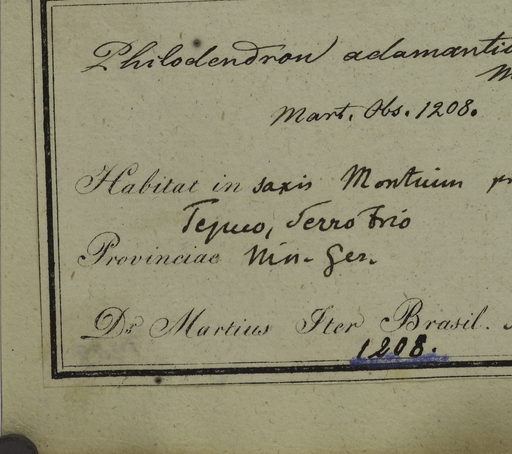 Philodendron adamantic
M
Mart. Obs. 1208.
Habitat in saxis Montium pr
Tejuco, Serro Frio
Provinciae Min. Ger.
Dr Martius Iter Brasil.
1208.